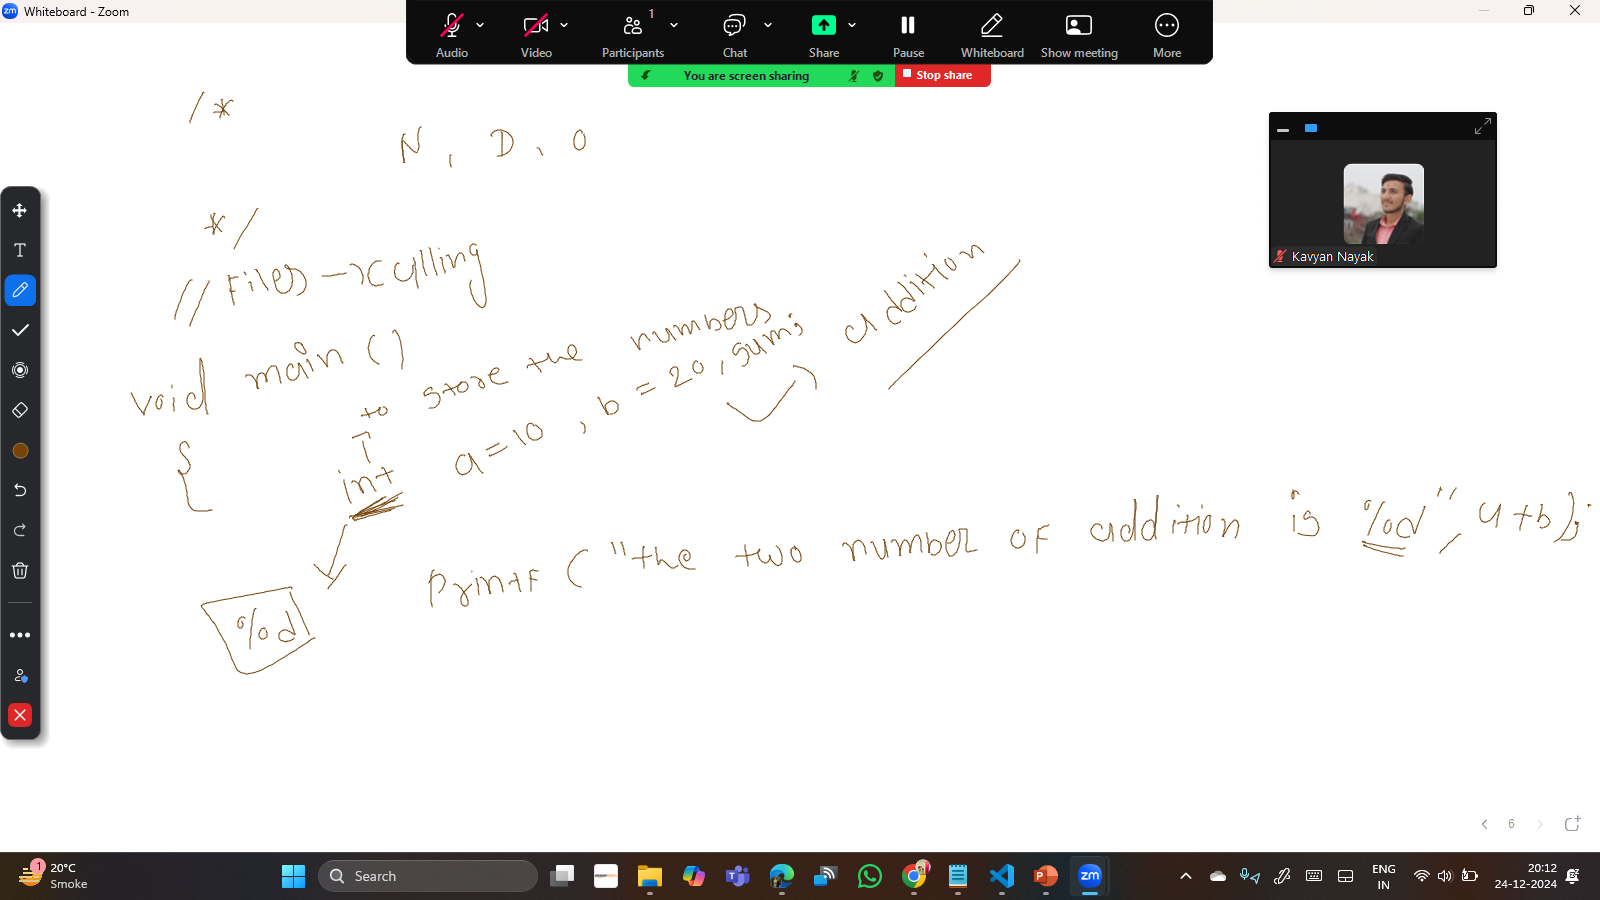 Whiteboard - Zoom
1
Audio Video Participants Chat Share Pause Whiteboard Show meeting More
You are screen sharing Stop share
/*
N, D, O
*/
// Files → calling
Kavyan Nayak
void main ()
{
to store the numbers
int a=10, b=20, sum; addition
%d
printf ("the two number of addition is %d", a+b);
6
1
20°C
Smoke
Search
ENG
IN
20:12
24-12-2024